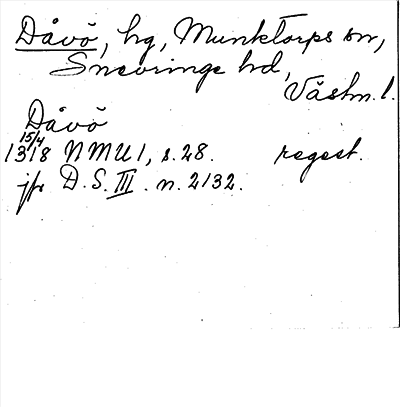 Dåvö, hg, Munktorps sn,
Snevringe hd,
Västm. l.
Dåvö
1318 15/4 NMU 1, s. 28. regest.
jfr D.S. III. n. 2132.